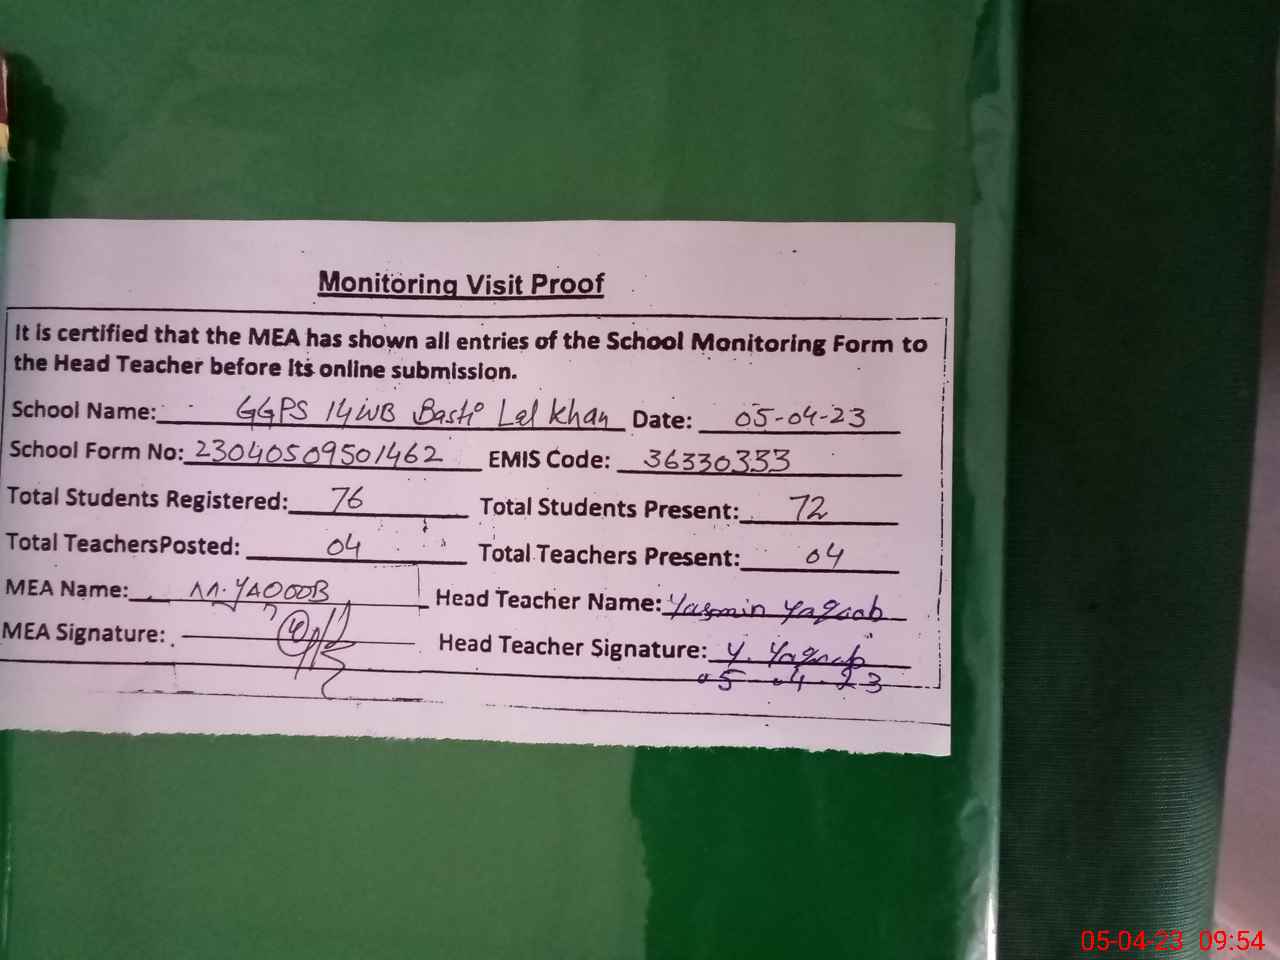 Monitoring Visit Proof
It is certified that the MEA has shown all entries of the School Monitoring Form to
the Head Teacher before its online submission.
School Name: GGPS 14WB Basti Lal Khan Date: 05-04-23
School Form No: 23040509501462 EMIS Code: 36330333
Total Students Registered: 76 Total Students Present: 72
Total TeachersPosted: 04 Total Teachers Present: 04
MEA Name: M. YAQOOB Head Teacher Name: Yasmin Yaqoob
MEA Signature: Head Teacher Signature: Y. Yaqoob
05-04-23
05-04-23 09:54